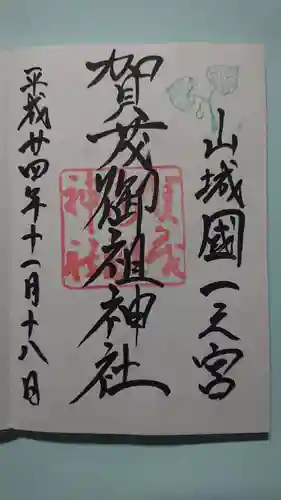 山城國一之宮
賀茂御祖神社
平成廿四年十一月十八日